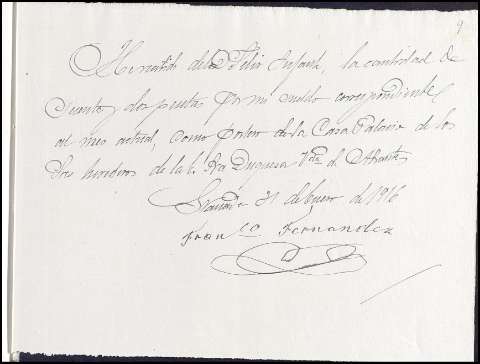 9
He recibido de D. Felix Infante, la cantidad de
veinte y dos pesetas por mi sueldo correspondiente
al mes actual, como portero de la Casa Palacio de los
Sres herederos de la Duquesa Vda de Abrantes
Granada 31 de Enero de 1916
Franco Fernandez